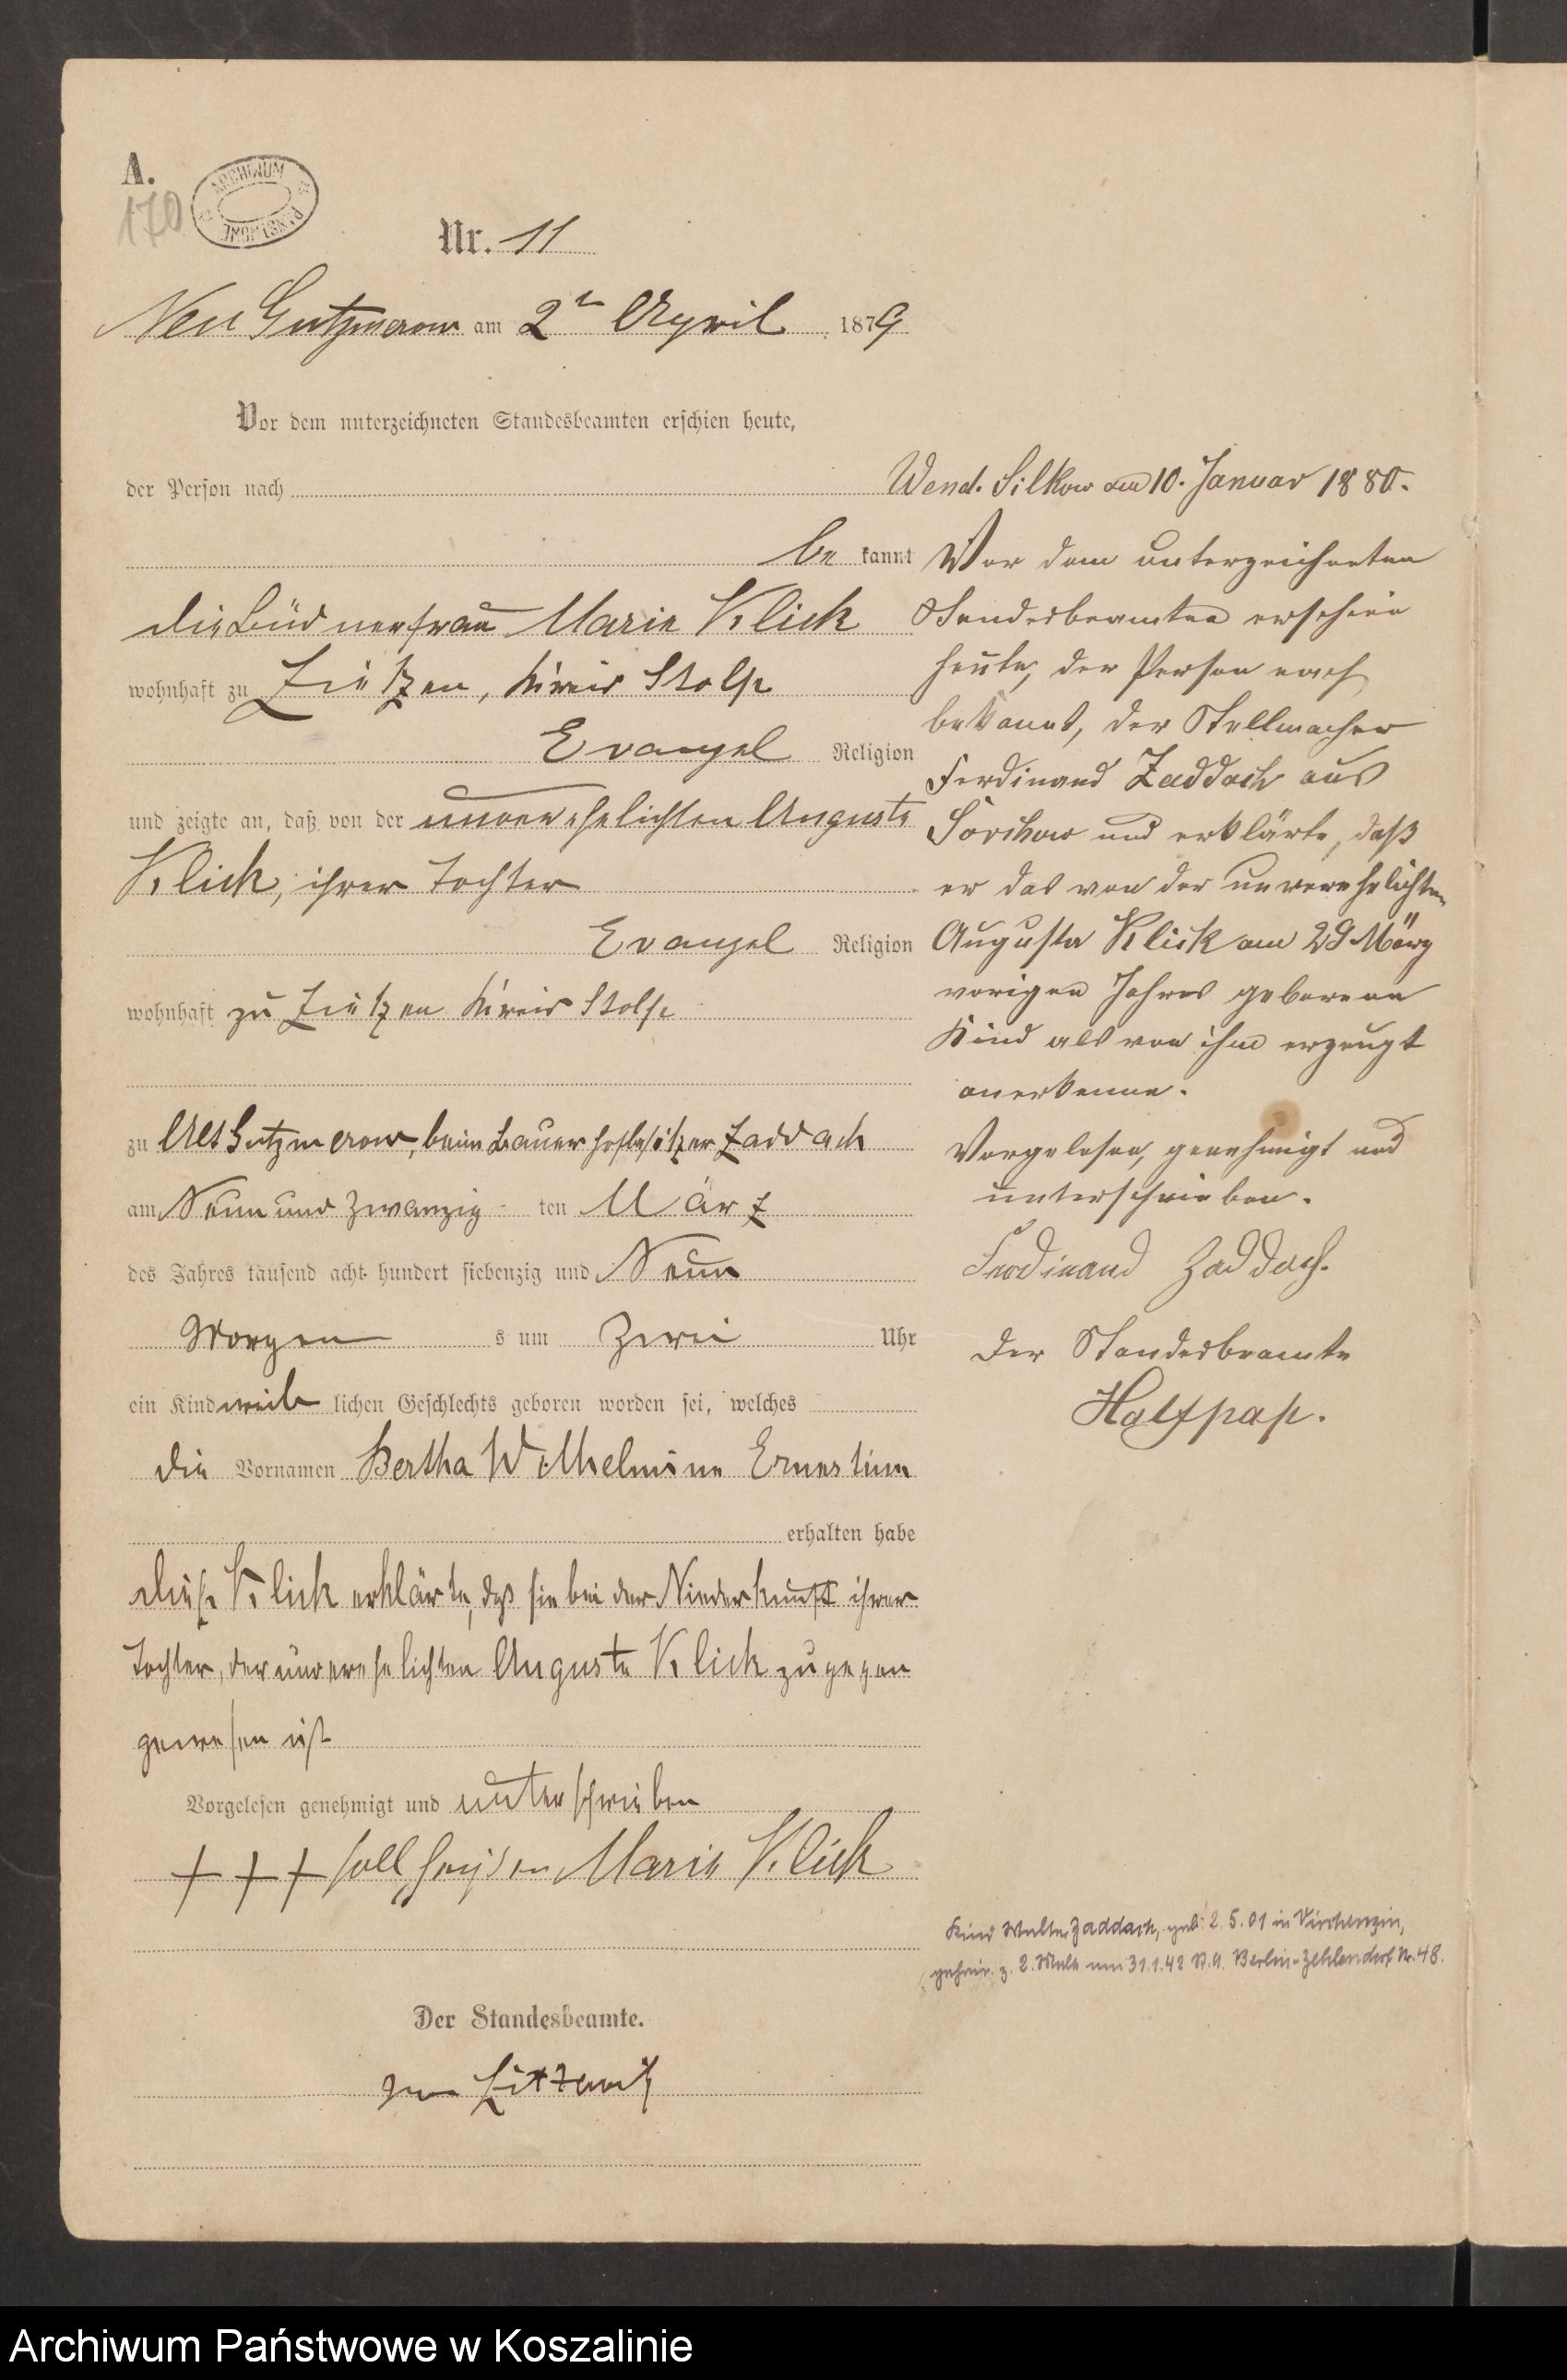 A.
170
ARCHIWUM PAŃSTWOWE
Nr. 11
Neu Gutzmerow am 2ten April 1879
Vor dem unterzeichneten Standesbeamten erschien heute,
der Person nach
be kannt
die Büdnerfrau Marie Klick
wohnhaft zu Zietzen, Kreis Stolp
Evangel Religion
und zeigte an, daß von der unverehelichten Auguste
Klick, ihrer Tochter
Evangel Religion
wohnhaft zu Zietzen Kreis Stolp
zu Alt Gutzmerow, beim Bauerhofbesitzer Zaddach
am Neun und zwanzig ten März
des Jahres tausend acht hundert siebenzig und Neun
Morgen s um Zwei Uhr
ein Kind weib lichen Geschlechts geboren worden sei, welches
die Vornamen Bertha Wilhelmine Ernestine
erhalten habe
diese Klick erklärte, daß sie bei der Niederkunft ihrer
Tochter, der unverehelichten Auguste Klick zugegen
gewesen ist
Vorgelesen genehmigt und unterschrieben
+ + + soll heißen Marie Klick
Der Standesbeamte.
von Zitzewitz
Wend. Silkow am 10. Januar 1880.
Vor dem unterzeichneten
Standesbeamten erschien
heute, der Person nach
bekannt, der Stellmacher
Ferdinand Zaddach aus
Sorchow und erklärte, daß
er das von der unverehelichten
Auguste Klick am 29 März
vorigen Jahres geborene
Kind als von ihm erzeugt
anerkenne.
Vorgelesen, genehmigt und
unterschrieben.
Ferdinand Zaddach.
Der Standesbeamte
Halfpap.
Kind Walter Zaddach, geb. 2.5.01 in Virchenzin,
geheir. z. 2. Male am 31.1.42 St.A. Berlin-Zehlendorf Nr. 48.
Archiwum Państwowe w Koszalinie